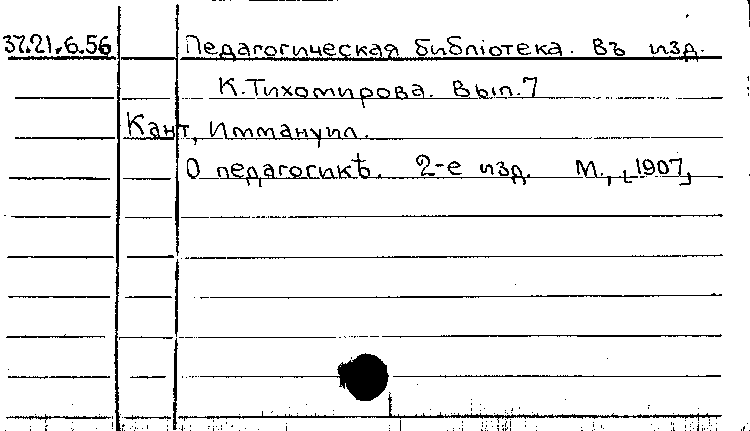 37.21.6.56 Педагогическая библіотека. Въ изд.
К. Тихомирова. Вып. 7
Кант, Иммануил.
О педагогикѣ. 2-е изд. М., [1907]